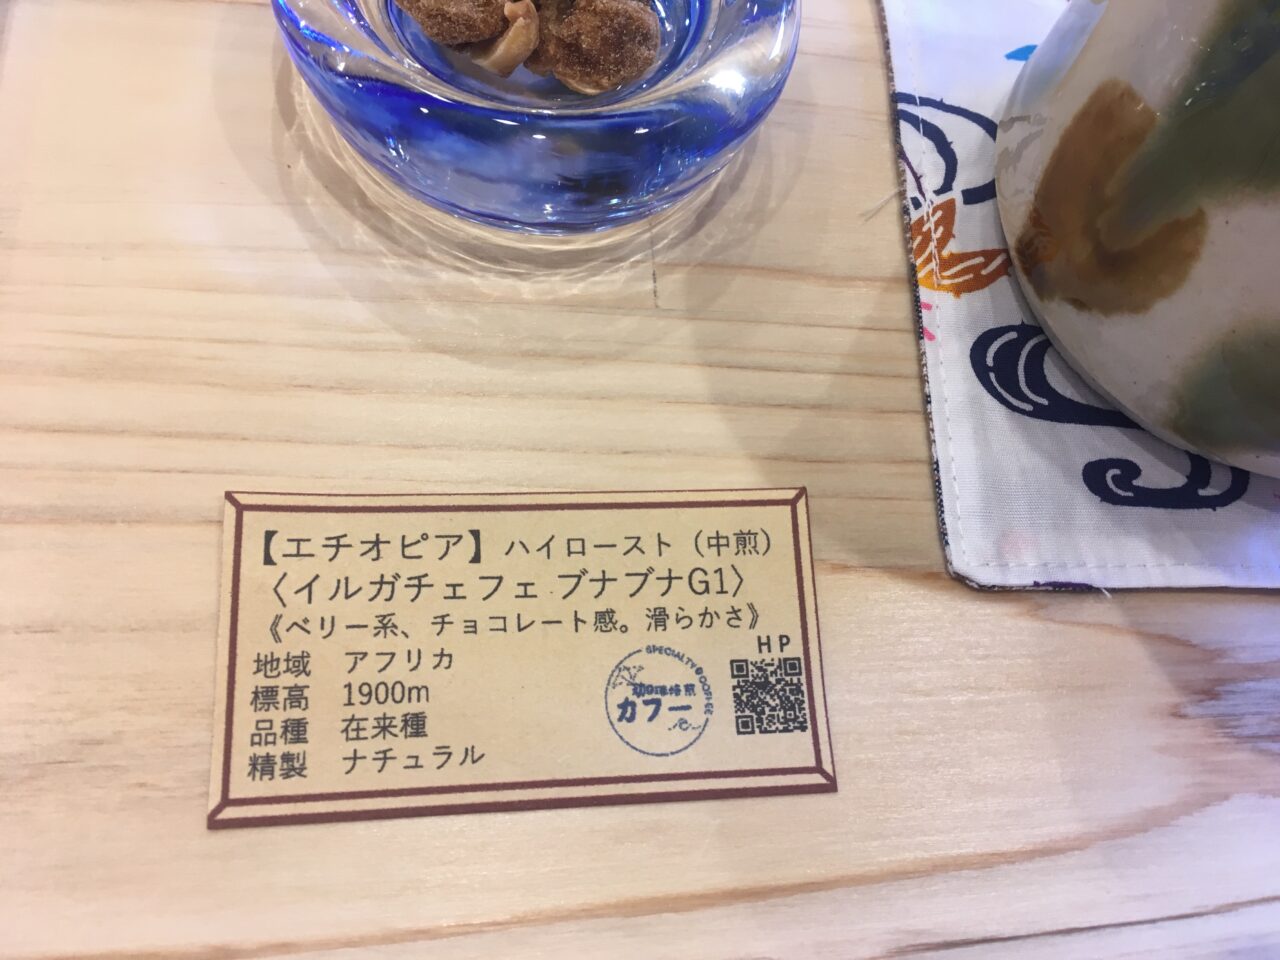 【エチオピア】ハイロースト（中煎）
〈イルガチェフェ ブナブナG1〉
《ベリー系、チョコレート感。滑らかさ》
HP
地域 アフリカ
標高 1900m
品種 在来種
精製 ナチュラル
SPECIALTY COFFEE
珈琲焙煎
カフー